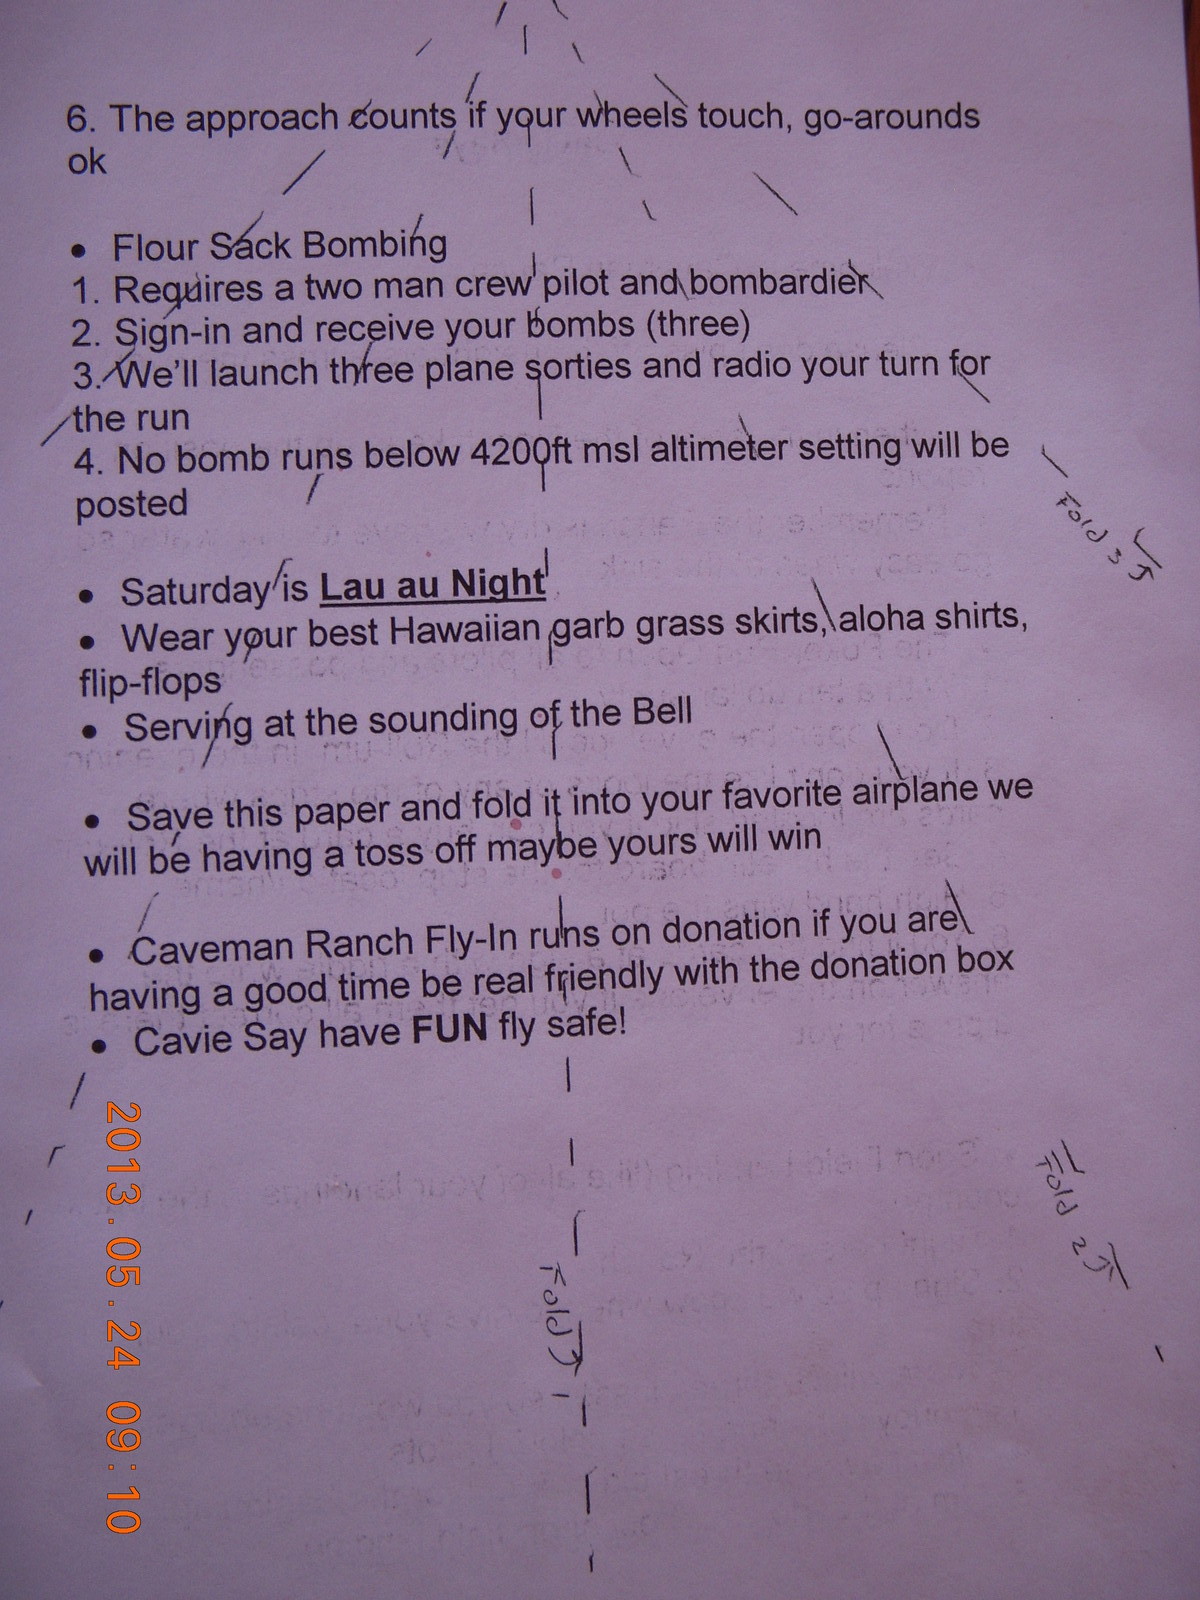 6. The approach counts if your wheels touch, go-arounds
ok
• Flour Sack Bombing
1. Requires a two man crew pilot and bombardier
2. Sign-in and receive your bombs (three)
3. We'll launch three plane sorties and radio your turn for
the run
4. No bomb runs below 4200ft msl altimeter setting will be
posted
• Saturday is Lau au Night
• Wear your best Hawaiian garb grass skirts, aloha shirts,
flip-flops
• Serving at the sounding of the Bell
• Save this paper and fold it into your favorite airplane we
will be having a toss off maybe yours will win
• Caveman Ranch Fly-In runs on donation if you are
having a good time be real friendly with the donation box
• Cavie Say have FUN fly safe!
Fold 3
Fold 2
Fold 1
2013.05.24 09:10